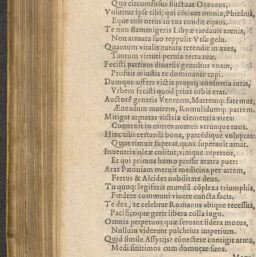 Qua circumfusus fluctuat Oceanus;
Voluitur ipse tibi, qui conspicit omnia, Phœbus,
Eque tuis ortis in tua condit equos.
Te non flammigeris Libye tardauit arenis,
Non armata suo reppulit Vrsa gelu.
Quantum vitalis natura tetendit in axes,
Tantum virtuti peruia terra tuæ.
Fecisti patriam diuersis gentibus vnam,
Profuit iniustis te dominante capi.
Dumque offers victis proprij consortia iuris,
Vrbem fecisti quod prius orbis erat.
Auctores generis Venerem, Martemq; fatemur,
Æneadum matrem, Romulidumq; patrem.
Mitigat armatas victrix clementia vires:
Conuenit in mores nomen vtrunque tuos.
Hinc tibi certandi bona, parcendique voluptas:
Quos timuit superat, quos superauit amat.
Inuentrix oleæ colitur, vinique repertor,
Et qui primus humo pressit aratra puer:
Aras Pæoniam meruit medicina per artem,
Fretus & Alcides nobilitate deus.
Tu quoq; legiferis mundũ cõplexa triumphis,
Fœdere communi viuere cuncta facis.
Te dea, te celebrat Romanus vbique recessus,
Pacificoque gerit libera colla iugo.
Omnia perpetuos quæ seruant sidera motus,
Nullum viderunt pulchrius imperium.
Quid simile Assyrijs cõnectere contigit armis,
Medi finitimos cum domuere suos.